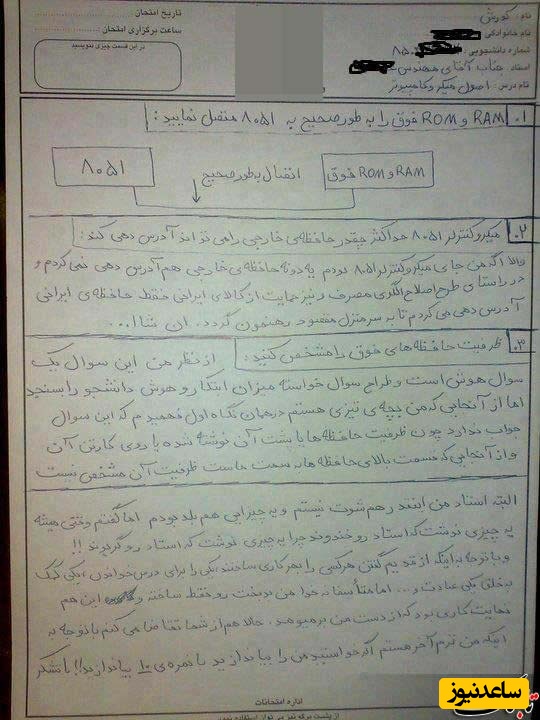 نام: کورش
تاریخ امتحان:
نام خانوادگی:
ساعت برگزاری امتحان:
شماره دانشجویی: ۸۵۰
در این قسمت چیزی ننویسید
استاد: جناب آقای مهندس
نام درس: اصول میکروکامپیوتر
۱. RAM و ROM فوق را به طور صحیح به ۸۰۵۱ متصل نمایید:
۸۰۵۱
اتصال به طور صحیح
RAM و ROM فوق
۲. میکروکنترلر ۸۰۵۱ حداکثر چقدر حافظه‌ی خارجی را می تواند آدرس دهی کند:
والا اگه من جای میکروکنترلر ۸۰۵۱ بودم یه دونه حافظه‌ی خارجی هم آدرس دهی نمی کردم و
در راستای طرح اصلاح الگوی مصرف و نیز حمایت از کالای ایرانی فقط حافظه‌ی ایرانی
آدرس دهی می کردم تا به سر منزل مقصود رهنمون گردد. ان شاا...
۳. ظرفیت حافظه های فوق را مشخص کنید:
از نظر من این سوال یک
سوال هوش است و طراح سوال خواسته میزان ابتکار و هوش دانشجو را بسنجد
اما از آنجایی که من بچه ی تیزی هستم در همان نگاه اول فهمیدم که این سوال
جواب ندارد چون ظرفیت حافظه ها یا پشت آن نوشته شده یا روی کارتن آن
و از آنجایی که قسمت بالای حافظه ها به سمت ماست ظرفیت آن مشخص نیست
البته استاد من اینقدر هم شوت نیستم و یه چیزایی هم بلد بودم اما گفتم وقتی میشه
یه چیزی نوشت که استاد رو خندوند چرا یه چیزی نوشت که استاد رو گریوند!!
و با توجه به اینکه از قدیم گفتن هر کسی را بهر کاری ساختند، یکی را برای درس خواندن، یکی کمک
به خلق یکی عبادت و... اما متأسفانه خدا من بدبخت رو فقط ساخته و این هم
نهایت کاری بود که از دست من برمیومد. حالا هم از شما تقاضا می کنم با توجه به
اینکه من ترم آخر هستم اگه خواستید من را بیاندازید با نمره‌ی ۱۰ بیاندازید!! با تشکر
اداره امتحانات
از پشت برگه نیز می توان استفاده نمود
صاعدنیوز